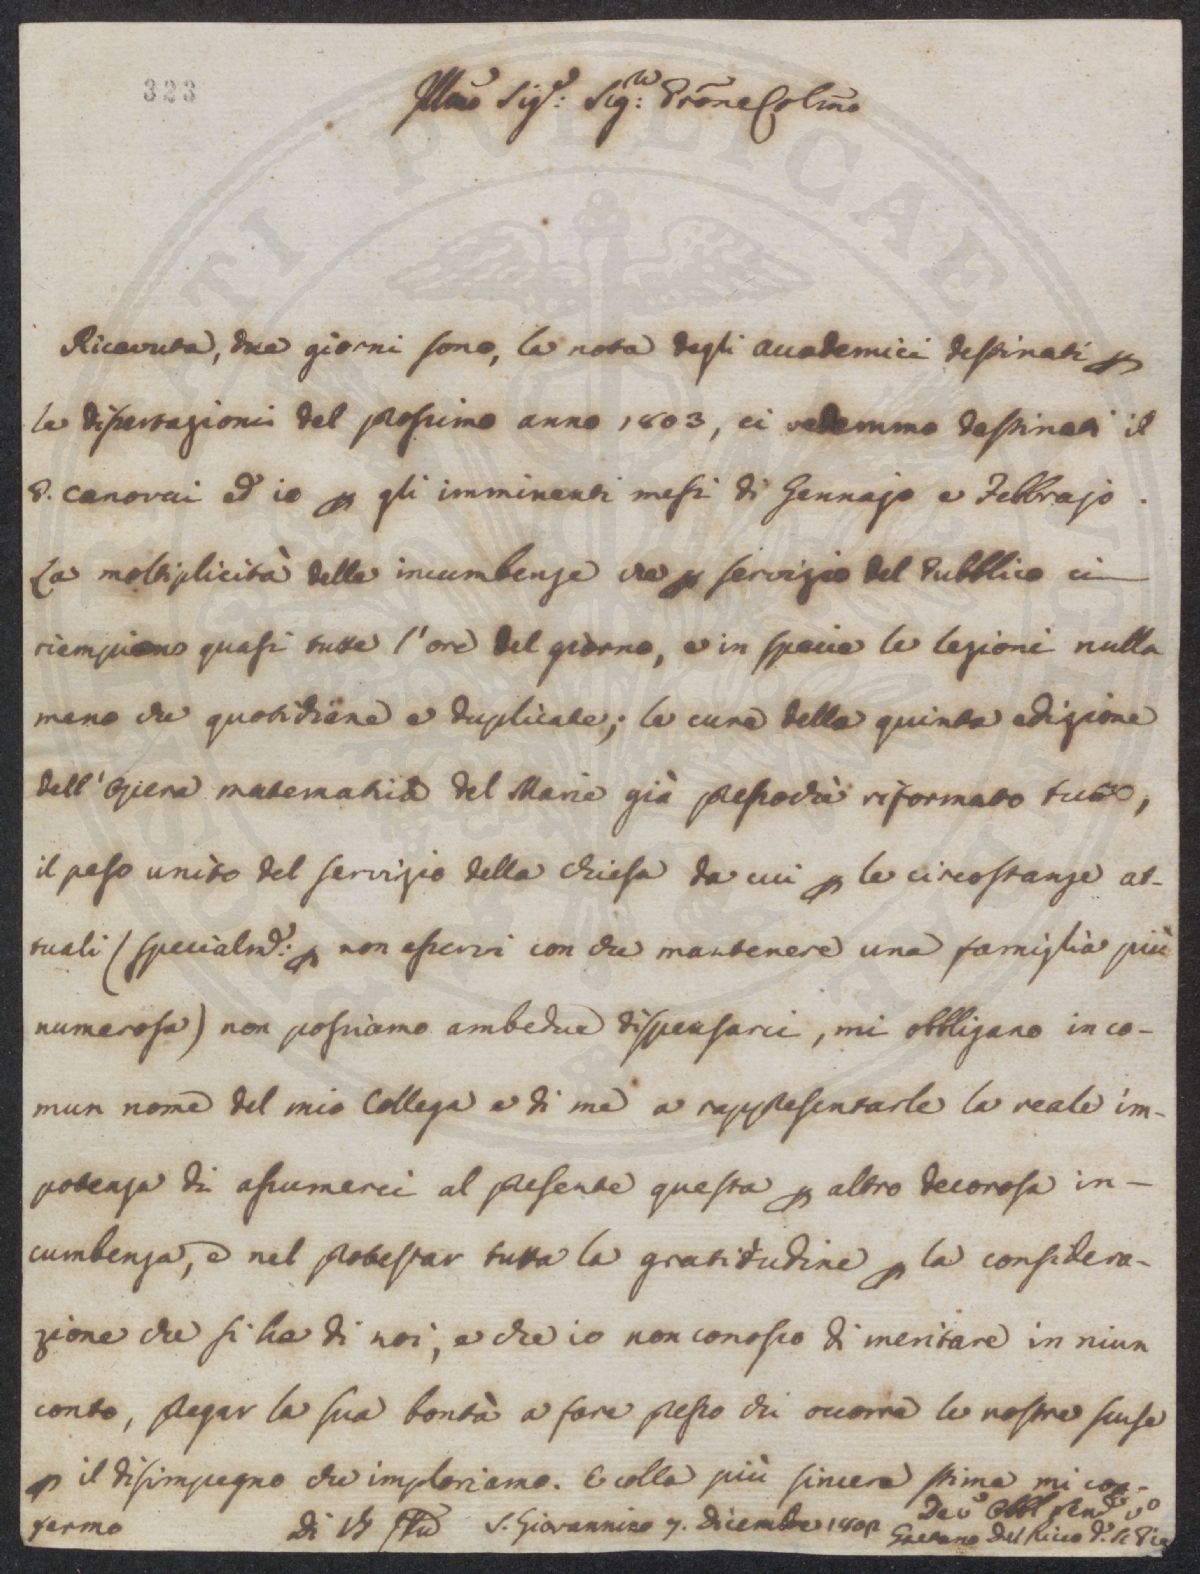 323
Illmo Sigr: Sigr: Prōne Colmo
Ricevuta, due giorni sono, la nota degli accademici destinati p
le dissertazioni del prossimo anno 1803, ci vedemmo destinati il
P. Canovai ed io p gli imminenti mesi di Gennajo e Febbrajo.
La moltiplicità delle incumbenze che p servizio del Pubblico ci
riempiono quasi tutte l'ore del giorno, e in specie le lezioni nulla
meno che quotidiane e duplicate; la cura della quinta edizione
dell'Opera matematica del Marie già pressochè riformato tutto,
il peso unito del servizio della Chiesa da cui p le circostanze at-
tuali (specialmte: p non esservi con che mantenere una famiglia più
numerosa) non possiamo ambedue dispensarci, mi obbligano in co-
mun nome del mio Collega e di me a rappresentarle la reale im-
potenza di assumerci al presente questa p altro decorosa in-
cumbenza, e nel protestar tutta la gratitudine p la considera-
zione che si ha di noi, e che io non conosco di meritare in niun
conto, pregar la sua bontà a fare presso chi occorre le nostre scuse
p il disimpegno che imploriamo. E colla più sincera stima mi con-
fermo
Di VS Illma S. Giovannino 7. dicembre 1802
Devo Obblo Serve vo
Gaetano Del Ricco d. S. Pie
PUBLICAE